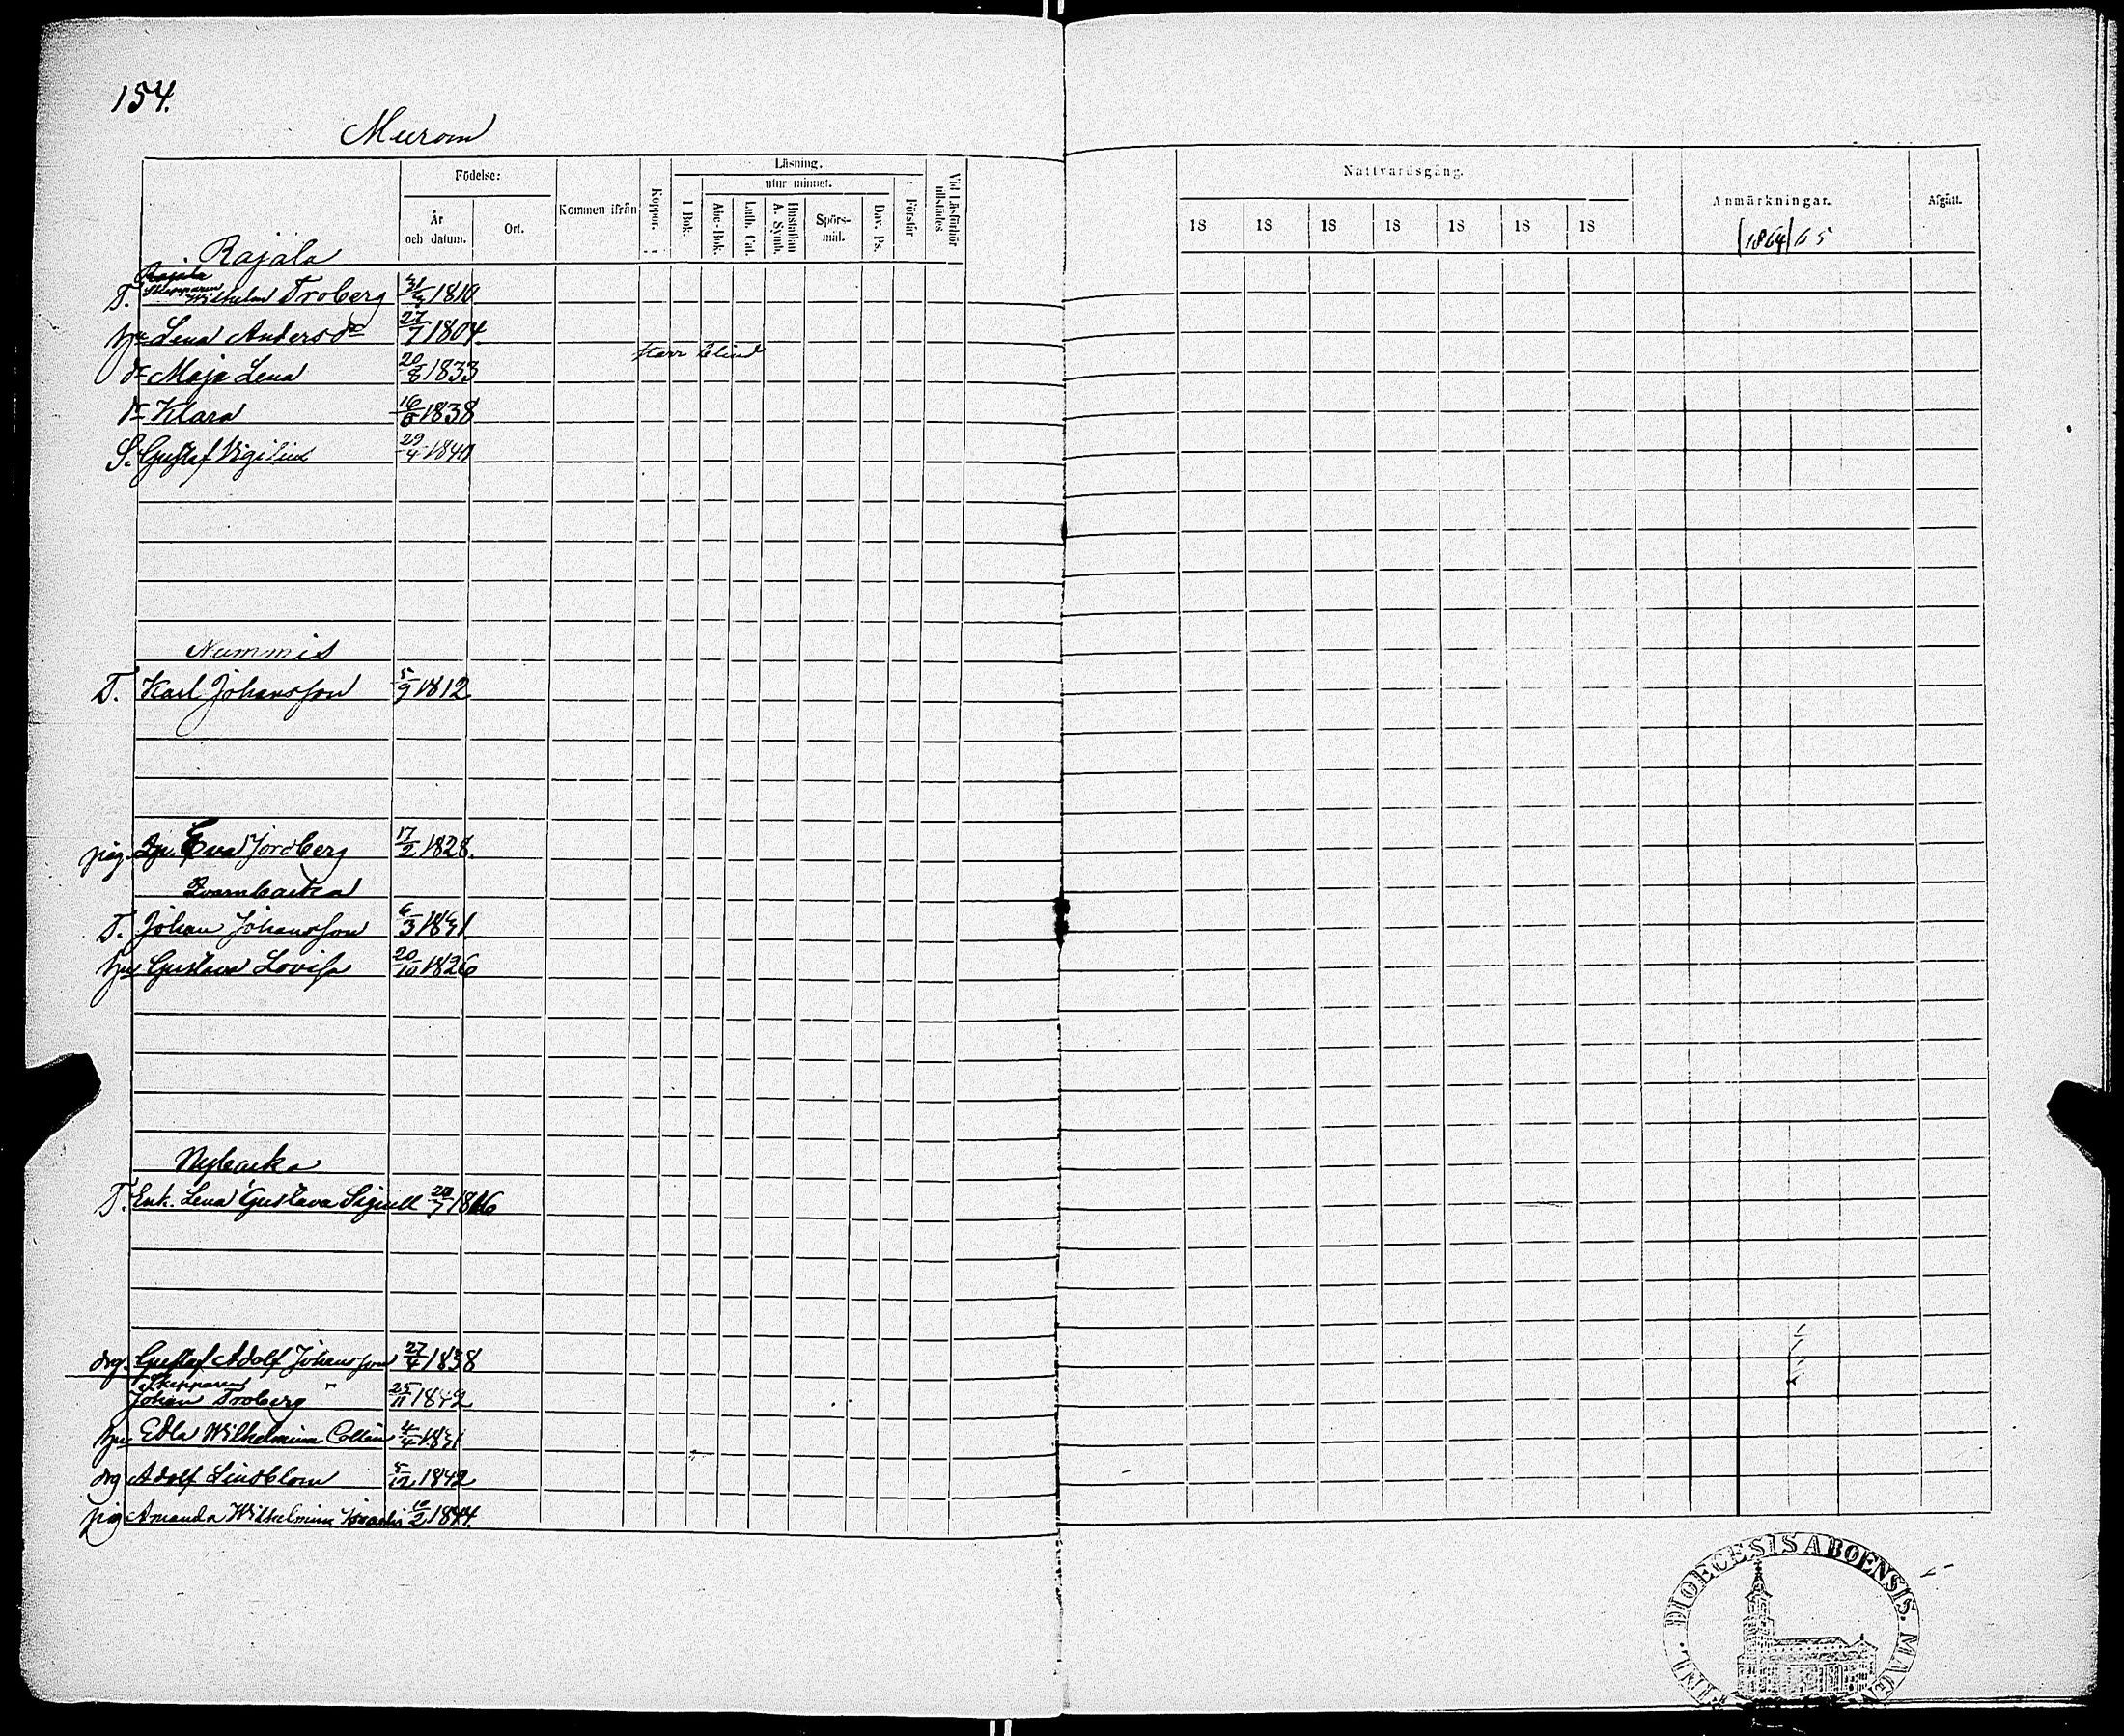 154.
Murom
Födelse:
År och datum.
Ort.
Kommen ifrån
Koppor.
Läsning.
utur minnet.
I Bok.
Abc-Bok.
Luth. Cat.
Hustaflan A. Symb.
Spörs-mål.
Dav. Ps.
Förstår
Vid Läsförhör tillstädes
Nattvardsgång.
18 18 18 18 18 18 18
Anmärkningar.
1864 65
Afgått.
Rajala
Rajala
T. Skepparen Wilhelm Troberg 1810
hu Lena Andersdr 27/7 1804.
starr blind
dr Maja Lena 20/8 1833
dr Klara 16/8 1838
S. Gustaf Vigilius 29/4 1840
Nummis
T. Karl Johansson 5/9 1812
pig. Eva Nordberg 17/2 1828.
Kvarnbacka
T. Johan Johansson 6/3 1831
hu Gustava Lovisa 20/10 1826
Nybacka
T. Enk. Lena Gustava Signell 20/7 1816
drg. Gustaf Adolf Johansson 27/4 1838
Skepparen
Johan Troberg 25/11 1842
hu Edla Wilhelmina Collin 4/4 1841
drg Adolf Lindblom 5/12 1842
pig Amanda Wilhelmina 10/2 1844.
DIOECESIS ABOENSIS.